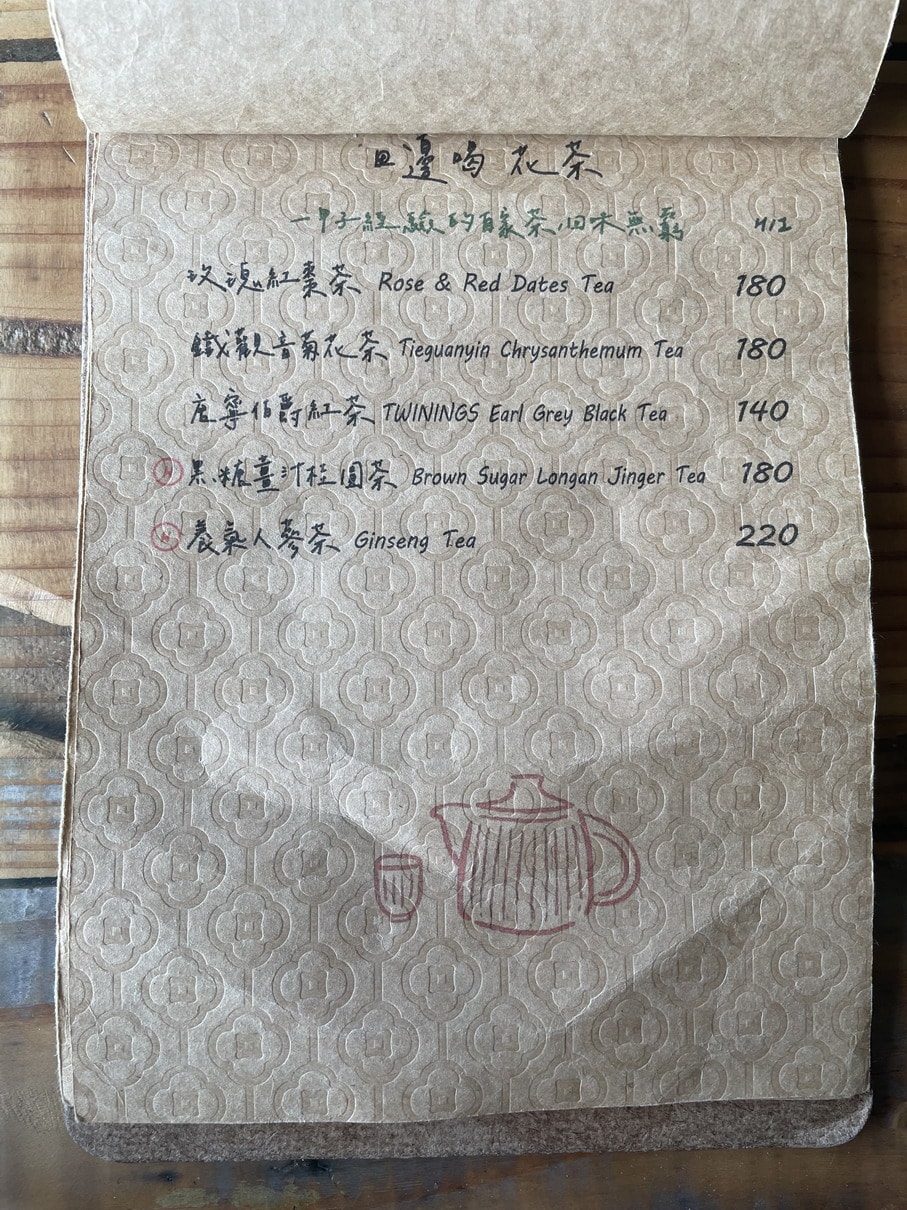 邊喝花茶
一甲子經驗的茶,回味無窮 H/I
玫瑰紅棗茶 Rose & Red Dates Tea 180
鐵觀音菊花茶 Tieguanyin Chrysanthemum Tea 180
唐寧伯爵紅茶 TWININGS Earl Grey Black Tea 140
黑糖薑汁桂圓茶 Brown Sugar Longan Jinger Tea 180
H 養氣人蔘茶 Ginseng Tea 220